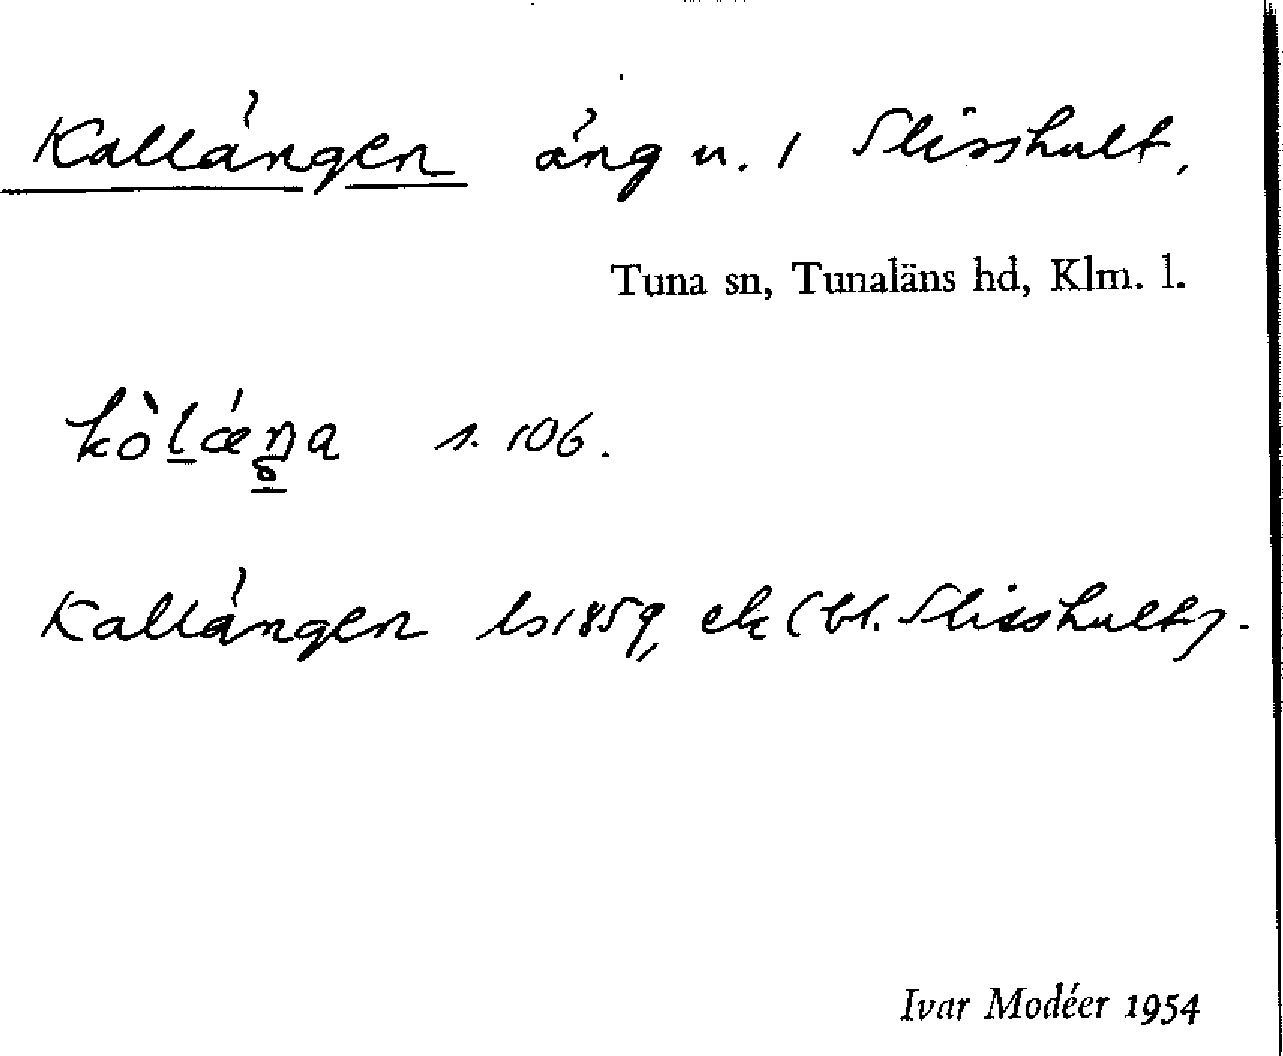 Kallängen äng u. 1 Slisshult,
Tuna sn, Tunaläns hd, Klm. l.
s. 106.
Kallängen ls 1859, ek (bl. Slisshult).
Ivar Modéer 1954